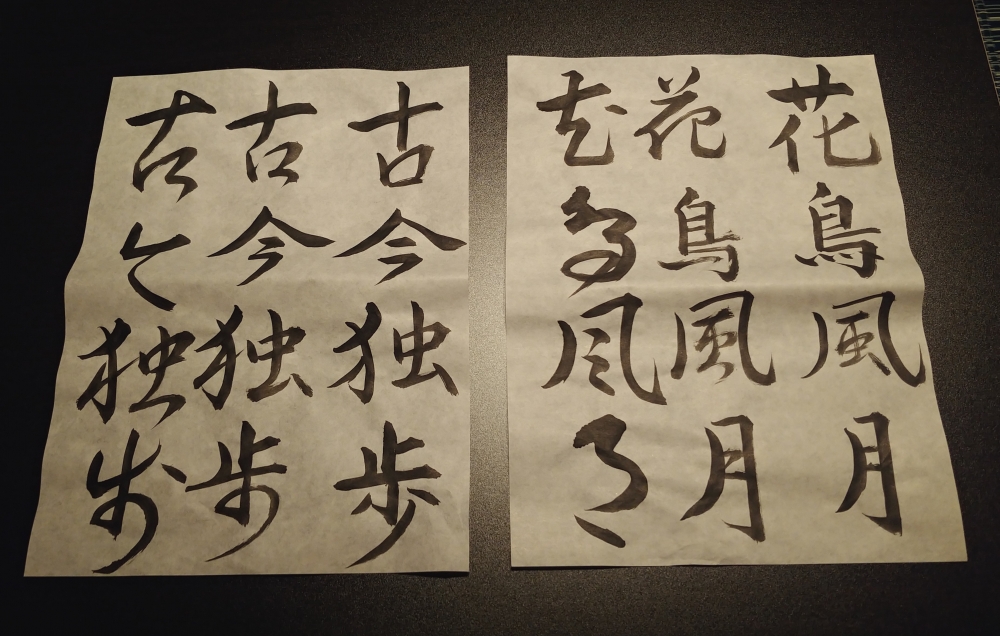 花鳥風月
花鳥風月
花鳥風月
古今独歩
古今独歩
古今独歩